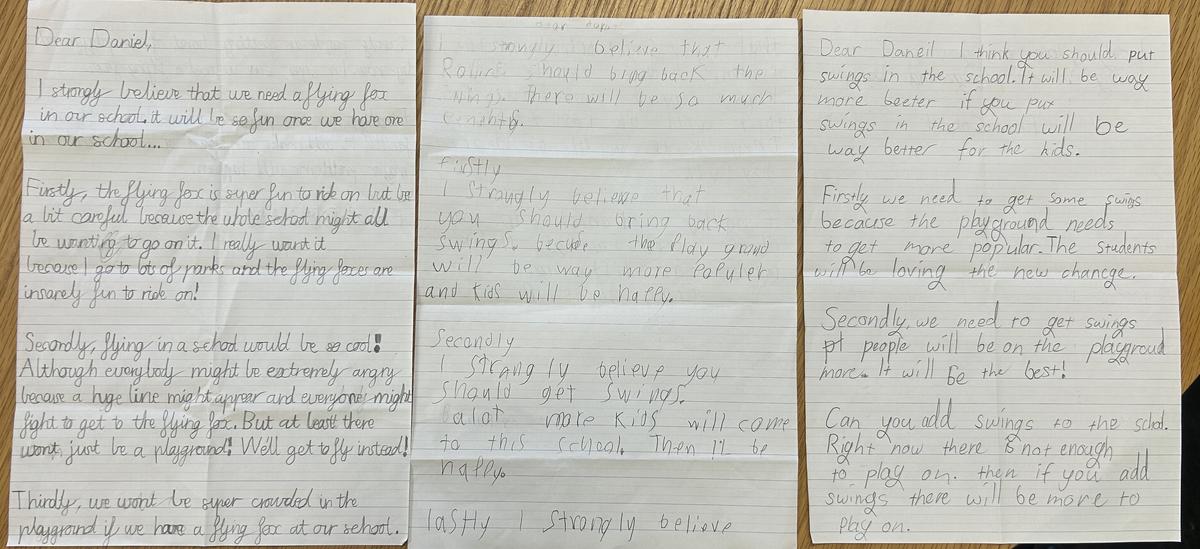 Dear Daniel,
I strongly believe that we need a flying fox
in our school. it will be so fun once we have one
in our school...
Firstly, the flying fox is super fun to ride on but be
a bit careful because the whole school might all
be wanting to go on it. I really want it
because I go to lots of parks and the flying foxes are
insanely fun to ride on!
Secondly, flying in a school would be so cool!
Although everybody might be extremely angry
because a huge line might appear and everyone might
fight to get to the flying fox. But at least there
wont just be a playground! We'll get to fly instead!
Thirdly, we wont be super crowded in the
playground if we have a flying fox at our school.
I strongly believe that
should bring back the
there will be so much
firstly
I Strongly believe that
you should bring back
swings. becuse the Play grond
will be way more Populer
and kids will be happy.
Secondly
I Strongly believe you
should get swings.
alot more kids will come
to this school. Then I'll be
happy.
lastly I Strongly believe
Dear Daneil I think you should put
swings in the school. It will be way
more beeter if you put
swings in the school will be
way better for the kids.
Firstly we need to get some swigs
because the playground needs
to get more popular. The students
will be loving the new change.
Secondly, we need to get swings
people will be on the playgroud
more. It will be the best!
Can you add swings to the schol.
Right now there is not enough
to play on. then if you add
swings there will be more to
play on.